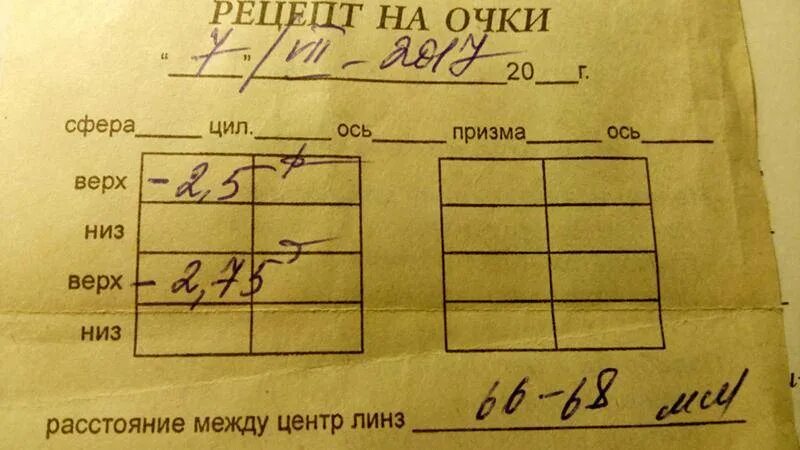 РЕЦЕПТ НА ОЧКИ
" 7 " / VII - 2017 20___г.
сфера_____ цил._____ ось_____ призма_____ ось_____
верх - 2,5
низ
верх - 2,75
низ
расстояние между центр линз 66-68 мм